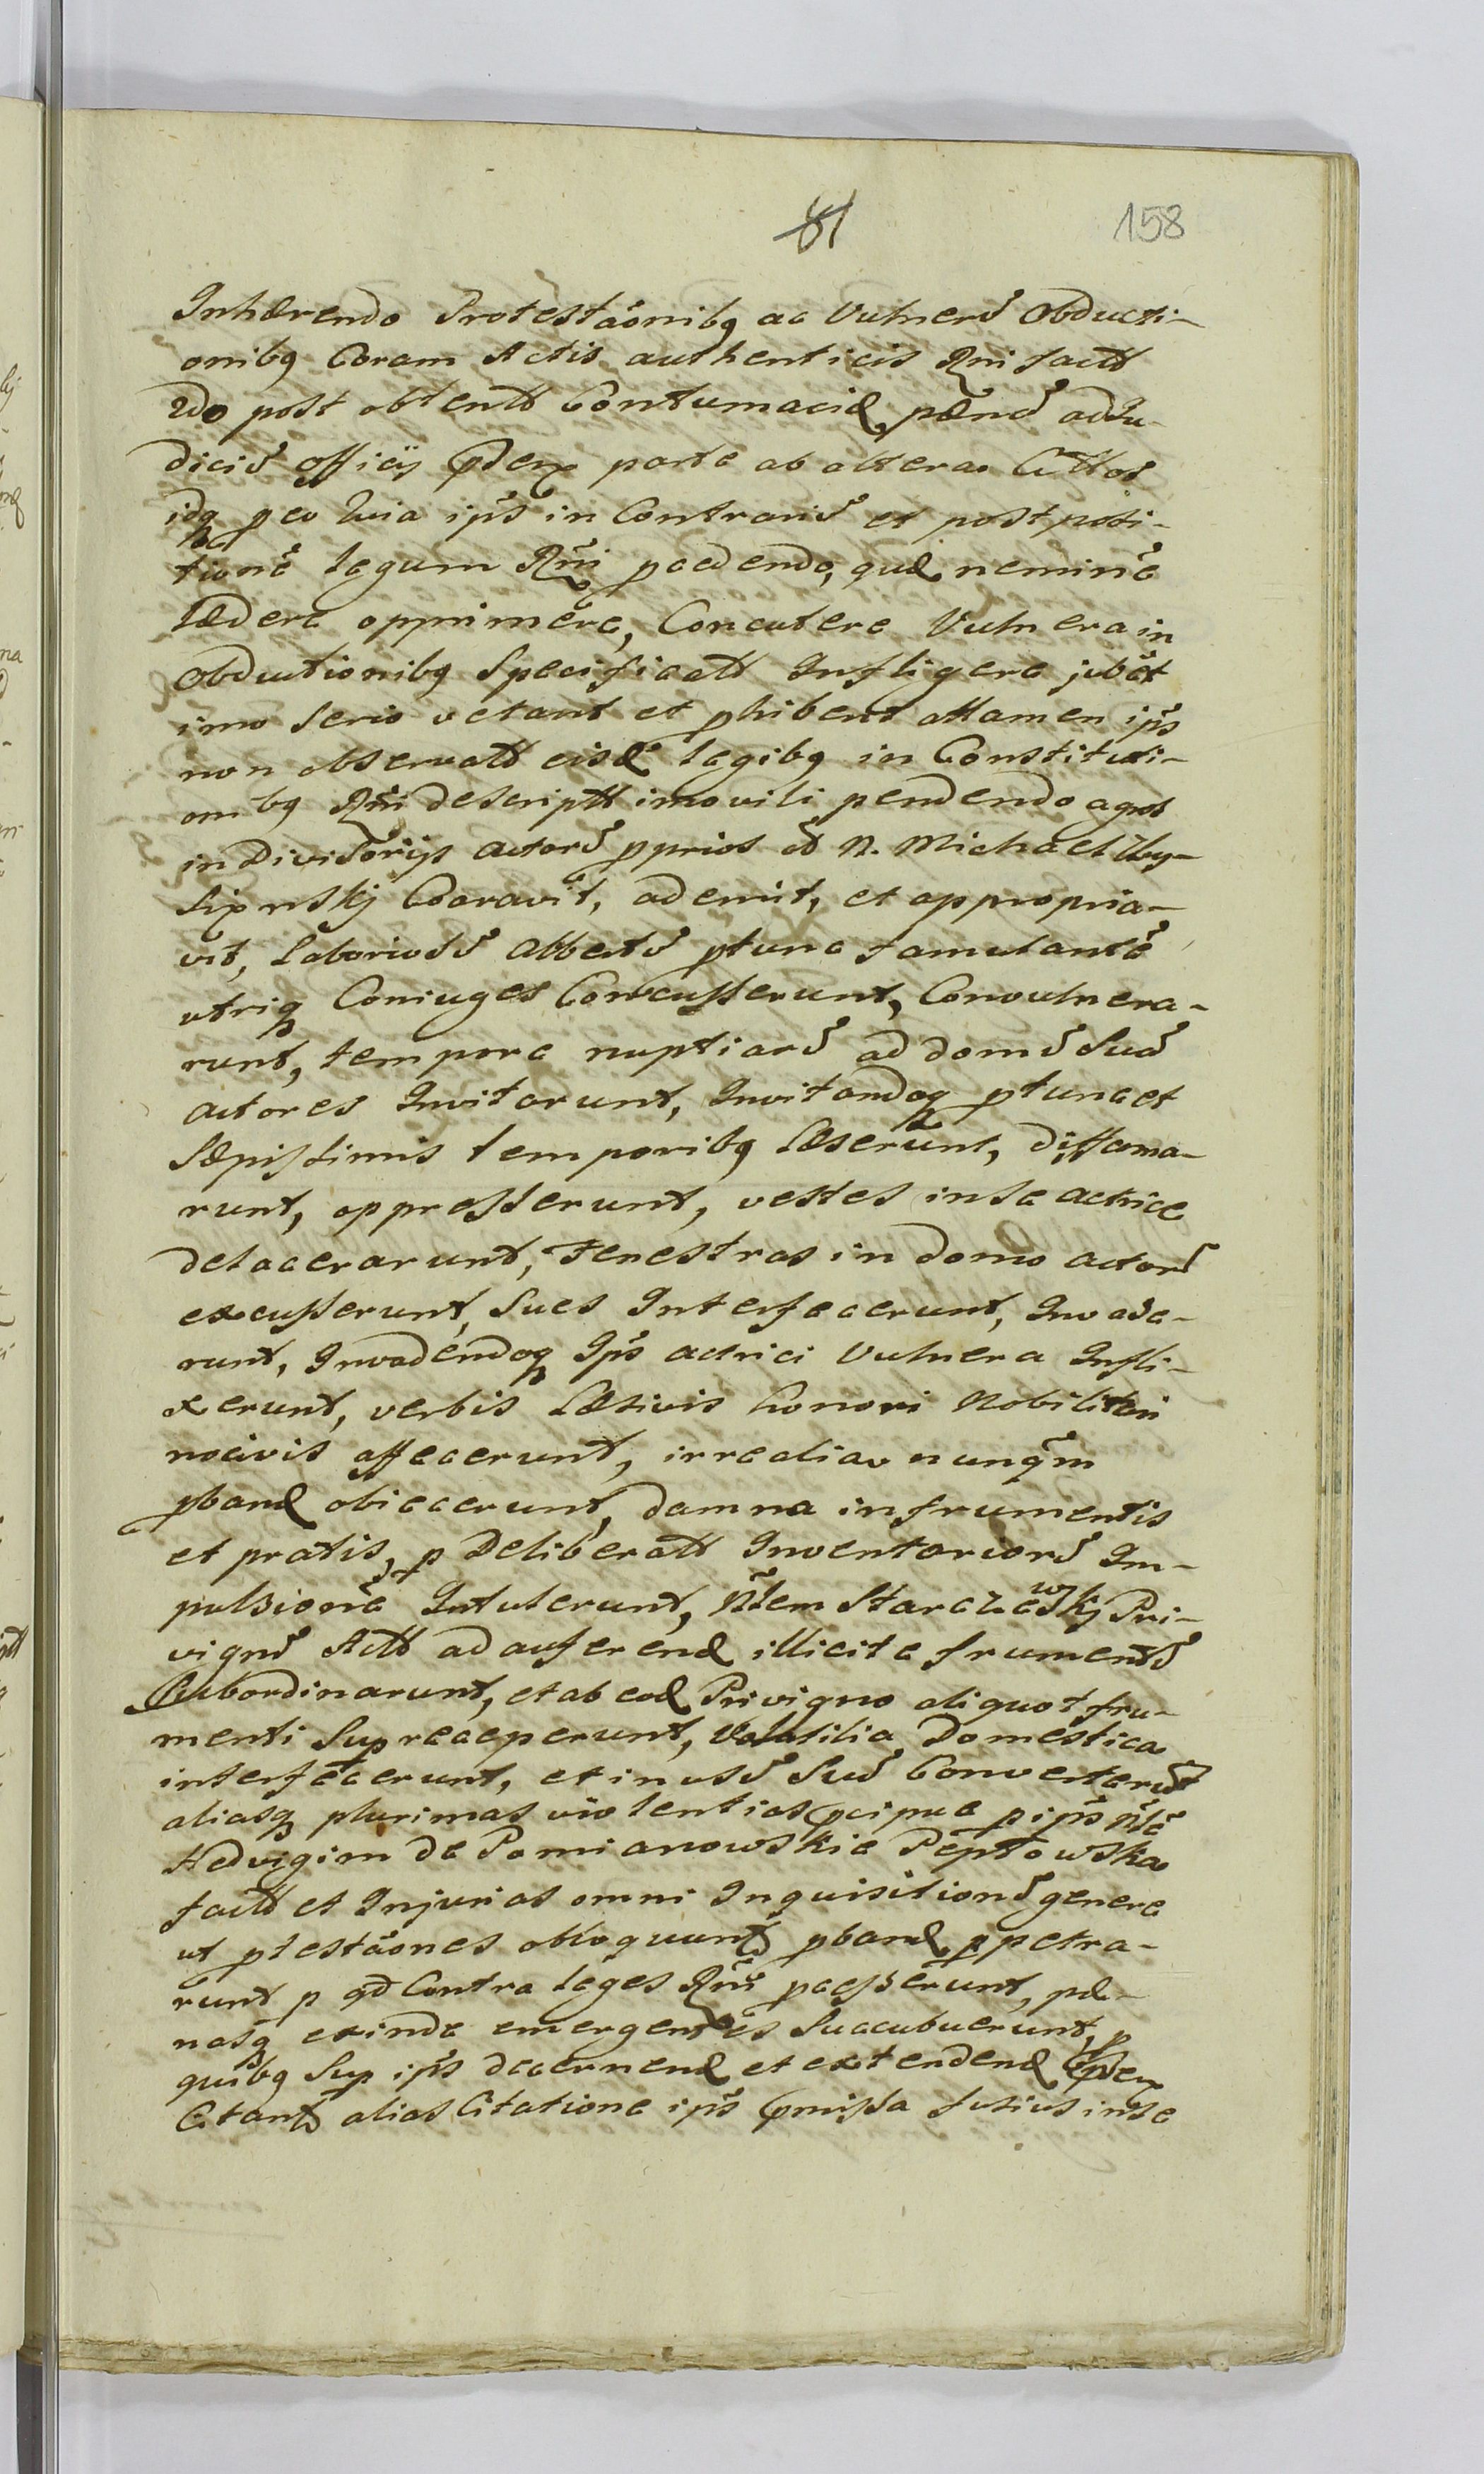 81 158
Inhærendo Protestãonibq ac Vulnerũ Obducti-
onibq Coram Actis authenticis Rni factt
2do post obtentt Contumaciæ pænã adiu-
diciũ officij pdent parte ab altera Cittos
idq p eo quia ips in Contrariũ et postposi-
tione legum Rni pcedendo, quæ neminẽ
lædere opprimere, Concutere Vulnera in
Obductionibq Specificatt Infligere jubẽt
imo serio vetant et phibent attamen ips
non observatt eisd legibq in Constituti-
onibq Rni descriptt imo vili pendendo agros
in Divisorijs actorũ pprios d N. Michael
Coaravit, ademit, et appropria-
vit, Laboriosũ Albertũ ptunc famulantẽ
utriq Coniuges Concusserunt, Convulnera-
runt, tempore nuptiarũ ad domũ Suã
actores Invitarunt, Invitandoq ptunc et
Sæpissimis temporibq læserunt, diffama-
runt, oppresserunt, vestes in se actrice
delacerarunt, Fenestras in domo actorũ
excusserunt, Sues Interfecerunt, Invase-
runt, Invadendoq Ips actrici Vulnera Infli-
xerunt, verbis læsivis honori Nobilitari
nocivis affecerunt, irrealia nunqm
pband obiecerunt, damna in frumentis
et pratis, p Deliberatt Inventariorũ Im-
pulsionẽ Intulerunt, Nlem Starczewskj Pri-
vignũ Actt ad auferend illicite frumentũ
Subordinarunt, et ab eod Privigno aliquot fru-
menti Sup receperunt, Volatilia Domestica
interfecerunt, et in usũ Suũ Converterũt
aliasq plurimas violentias pcipue p ips Nlẽ
Hedvigim de Pomianowskie Peptowska
factt et Injurias omni Inquisitionũ genere
ut ptestãones obloquunt pband ppetra-
runt p qd Contra leges Rni pcesserunt, pæ-
nasq exinde emergentes Succubuerunt, p
quibq Sup ips decernend et extendend pdent
Citant alias Citatione ips pmissa fusius in se